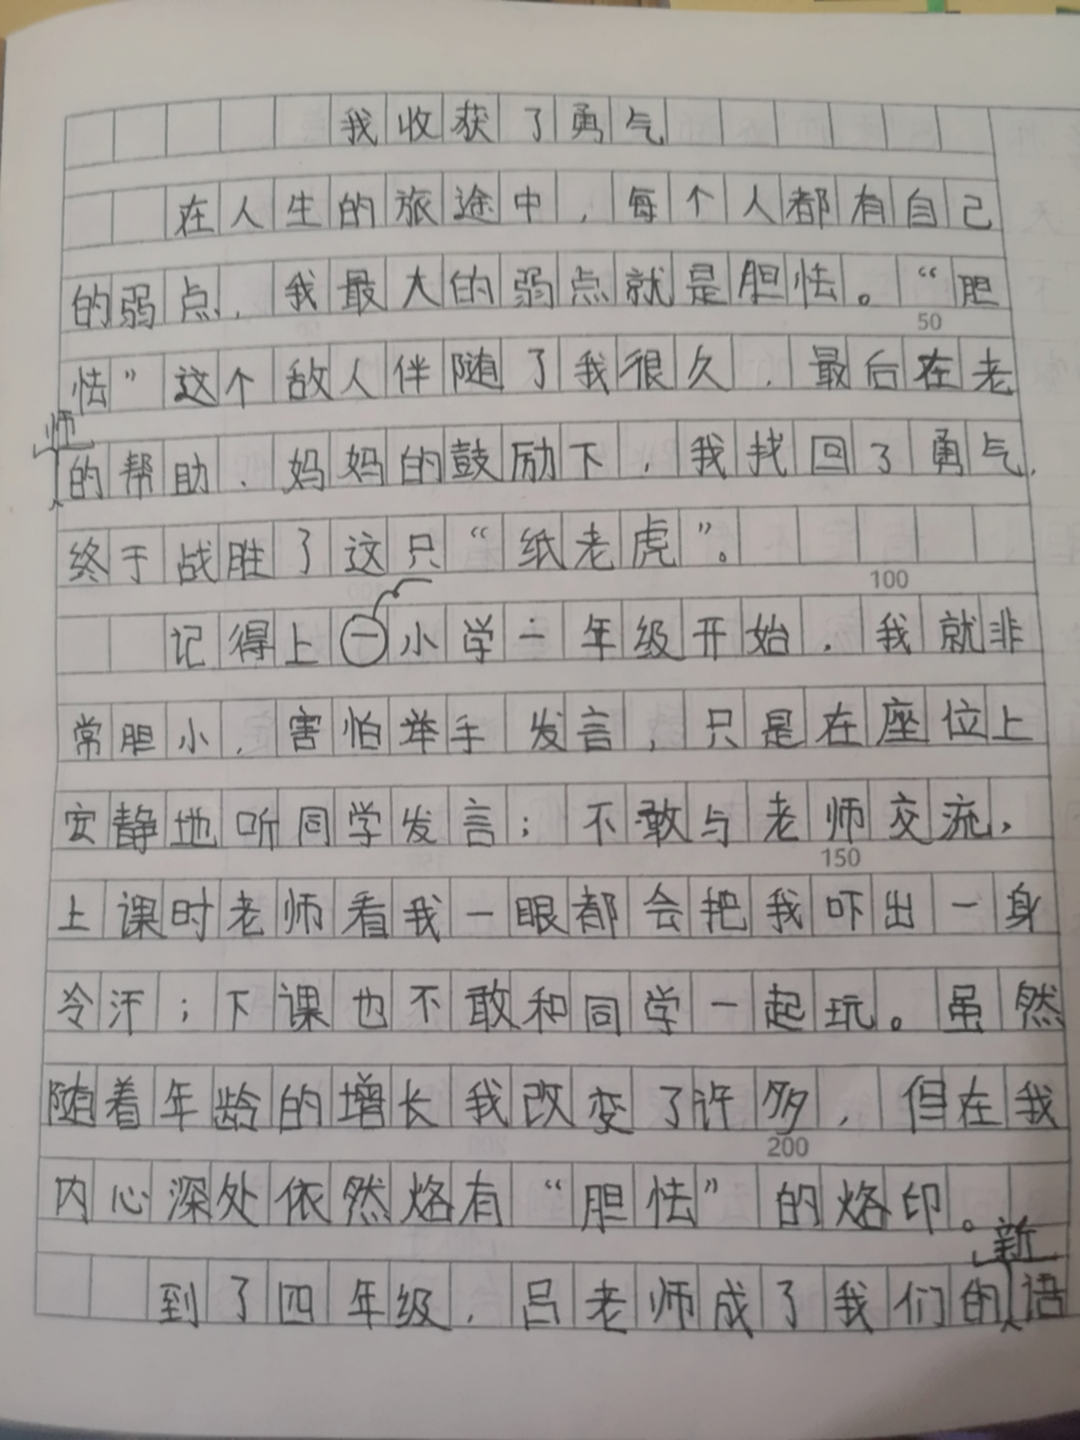 我收获了勇气
在人生的旅途中，每个人都有自己
的弱点，我最大的弱点就是胆怯。“胆
50
怯”这个敌人伴随了我很久，最后在老
师
的帮助、妈妈的鼓励下，我找回了勇气，
终于战胜了这只“纸老虎”。
100
记得上一小学一年级开始，我就非
常胆小，害怕举手发言，只是在座位上
安静地听同学发言；不敢与老师交流，
150
上课时老师看我一眼都会把我吓出一身
冷汗；下课也不敢和同学一起玩。虽然
随着年龄的增长我改变了许多，但在我
200
内心深处依然烙有“胆怯”的烙印。
新
到了四年级，吕老师成了我们的语